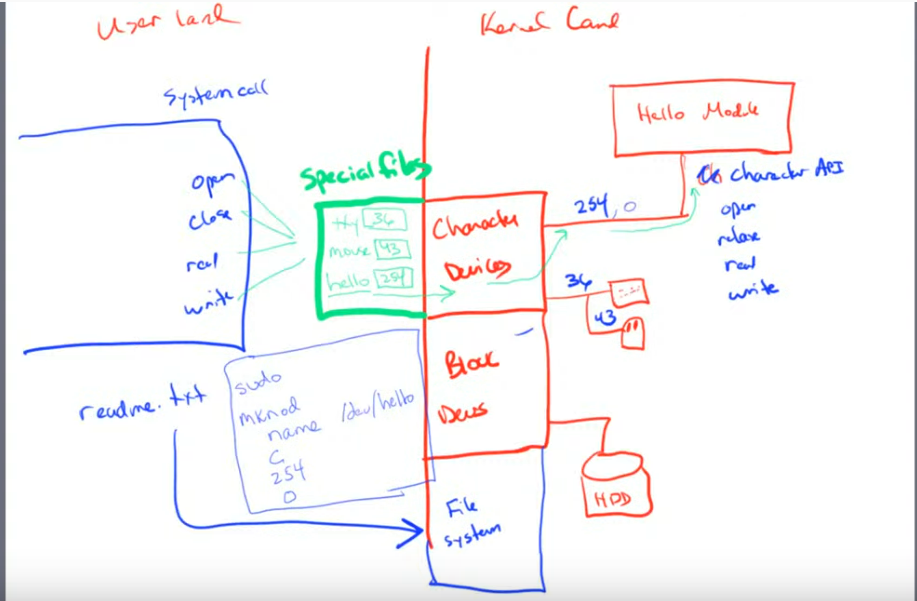 User Land
Kernel Land
System call
Hello Module
open
close
read
write
Special files
tty 36
mouse 43
hello 254
Character
Devices
254, 0
Character API
open
release
read
write
36
43
Block
Devs
readme.txt
sudo
mknod
name /dev/hello
C
254
0
HDD
File
system